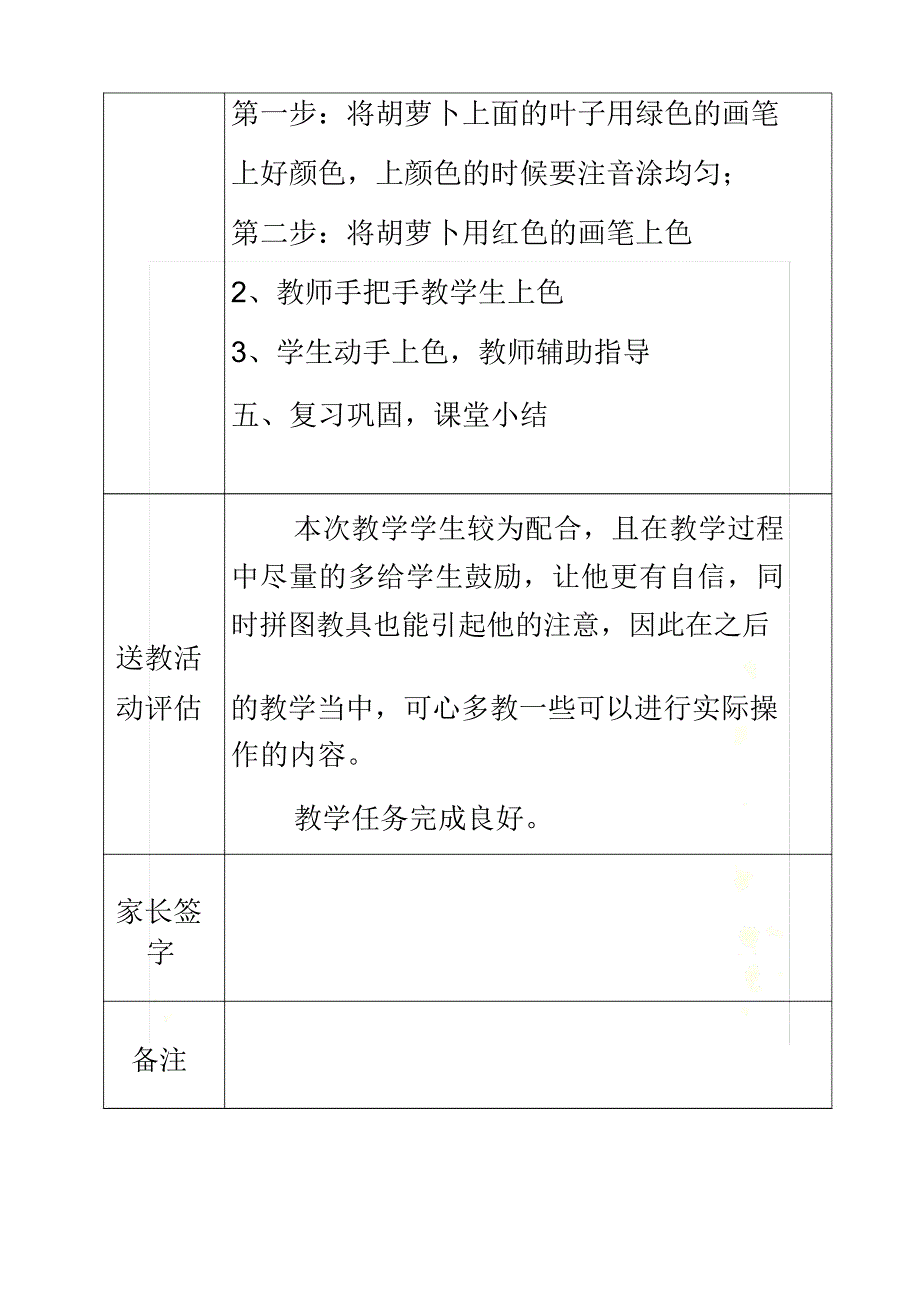 第一步：将胡萝卜上面的叶子用绿色的画笔
上好颜色，上颜色的时候要注音涂均匀；
第二步：将胡萝卜用红色的画笔上色
2、教师手把手教学生上色
3、学生动手上色，教师辅助指导
五、复习巩固，课堂小结
送教活
动评估
本次教学学生较为配合，且在教学过程
中尽量的多给学生鼓励，让他更有自信，同
时拼图教具也能引起他的注意，因此在之后
的教学当中，可心多教一些可以进行实际操
作的内容。
教学任务完成良好。
家长签
字
备注